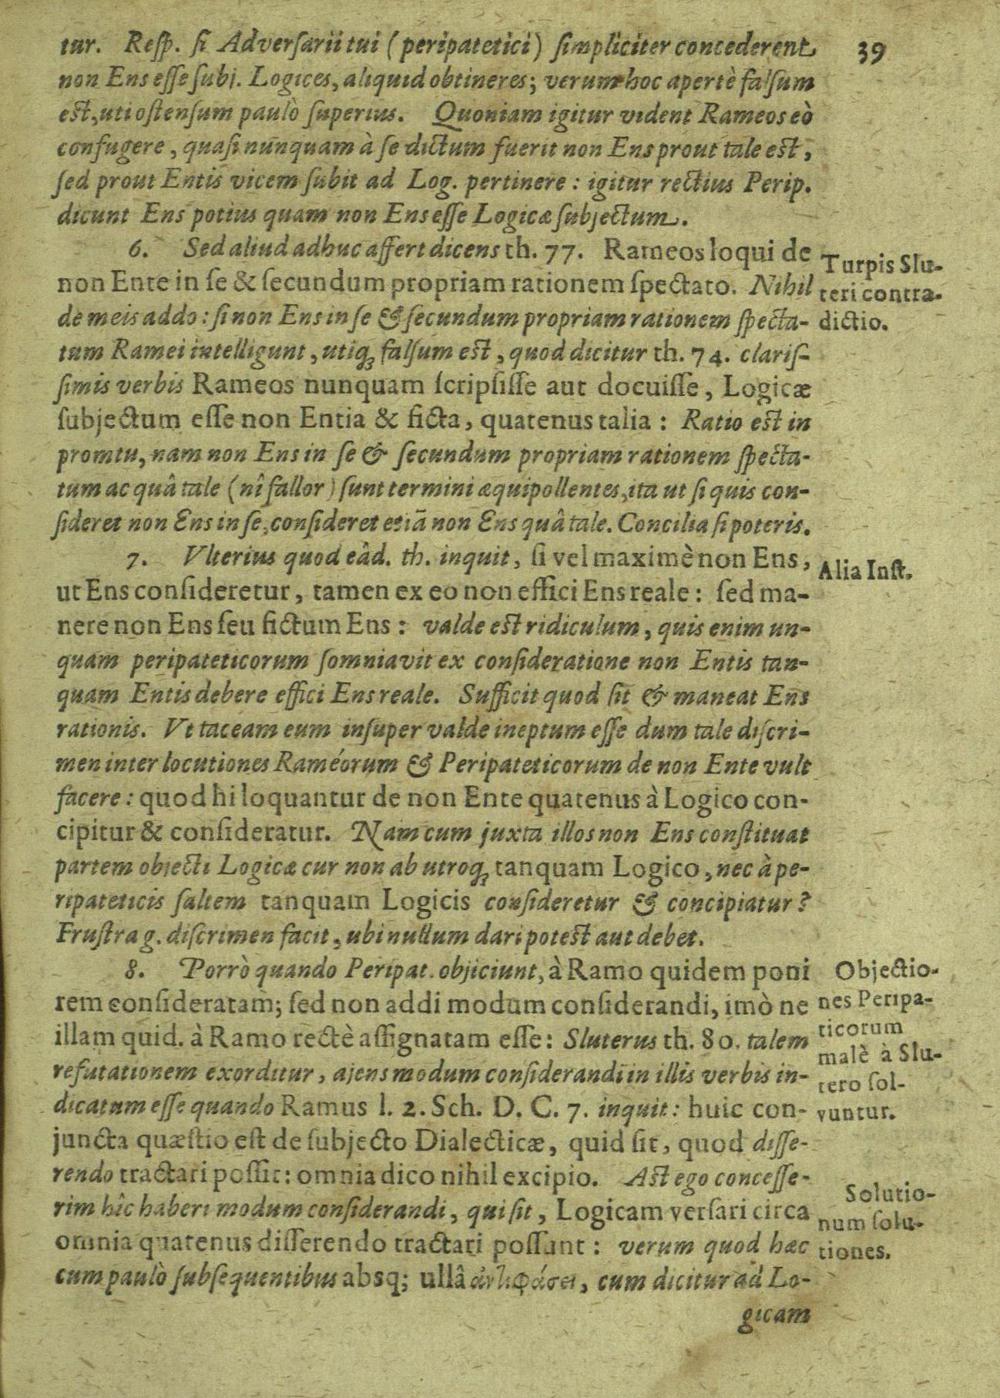 tur. Resp. si Adversarii tui (peripatetici) simpliciter concederent 39
non Ens esse subj. Logices, aliquid obtineres; verum hoc apertè falsum
est, uti ostensum paulò superius. Quoniam igitur vident Rameos eò
confugere, quasi nunquam à se dictum fuerit non Ens prout tale est,
sed prout Entis vicem subit ad Log. pertinere: igitur rectius Perip.
dicunt Ens potius quam non Ens esse Logicæ subjectum.
6. Sed aliud adhuc affert dicens th. 77. Rameos loqui de
non Ente in se & secundum propriam rationem spectato. Nihil
de meis addo: si non Ens in se & secundum propriam rationem specta-
tum Ramei intelligunt, utiq; falsum est, quod dicitur th. 74. claris-
simis verbis Rameos nunquam scripsisse aut docuisse, Logicæ
subjectum esse non Entia & ficta, quatenus talia: Ratio est in
promtu, nam non Ens in se & secundum propriam rationem specta-
tum ac quâ tale (nî fallor) sunt termini æquipollentes, ita ut si quis con-
sideret non Ens in se, consideret etiã non Ens quâ tale. Concilia si poteris.
Turpis Slu-
teri contra-
dictio.
7. Vlterius quod eâd. th. inquit, si vel maximè non Ens,
ut Ens consideretur, tamen ex eo non effici Ens reale: sed ma-
nere non Ens seu fictum Ens: valde est ridiculum, quis enim un-
quam peripateticorum somniavit ex consideratione non Entis tan-
quam Entis debere effici Ens reale. Sufficit quod sit & maneat Ens
rationis. Vt taceam eum insuper valde ineptum esse dum tale discri-
men inter locutiones Rameórum & Peripateticorum de non Ente vult
facere: quod hi loquantur de non Ente quatenus à Logico con-
cipitur & consideratur. Nam cum juxta illos non Ens constituat
partem objecti Logicæ cur non ab utroq; tanquam Logico, nec à pe-
ripateticis saltem tanquam Logicis consideretur & concipiatur?
Frustra g. discrimen facit, ubi nullum dari potest aut debet.
Alia Inst.
8. Porrò quando Peripat. objiciunt, à Ramo quidem poni
rem consideratam; sed non addi modum considerandi, imò ne
illam quid. à Ramo rectè assignatam esse: Sluterus th. 80. talem
refutationem exorditur, ajens modum considerandi in illis verbis in-
dicatum esse quando Ramus l. 2. Sch. D. C. 7. inquit: huic con-
juncta quæstio est de subjecto Dialecticæ, quid sit, quod disse-
rendo tractari possit: omnia dico nihil excipio. Ast ego concesse-
rim hîc haberi modum considerandi, qui sit, Logicam versari circa
omnia quatenus disserendo tractari possunt: verum quod hæc
cum paulò subsequentibus absq; ullâ ἀντιφάσει, cum dicitur ad Lo-
gicam
Objectio-
nes Peripa-
ticorum
malè à Slu-
tero sol-
vuntur.
Solutio-
num solu-
tiones.